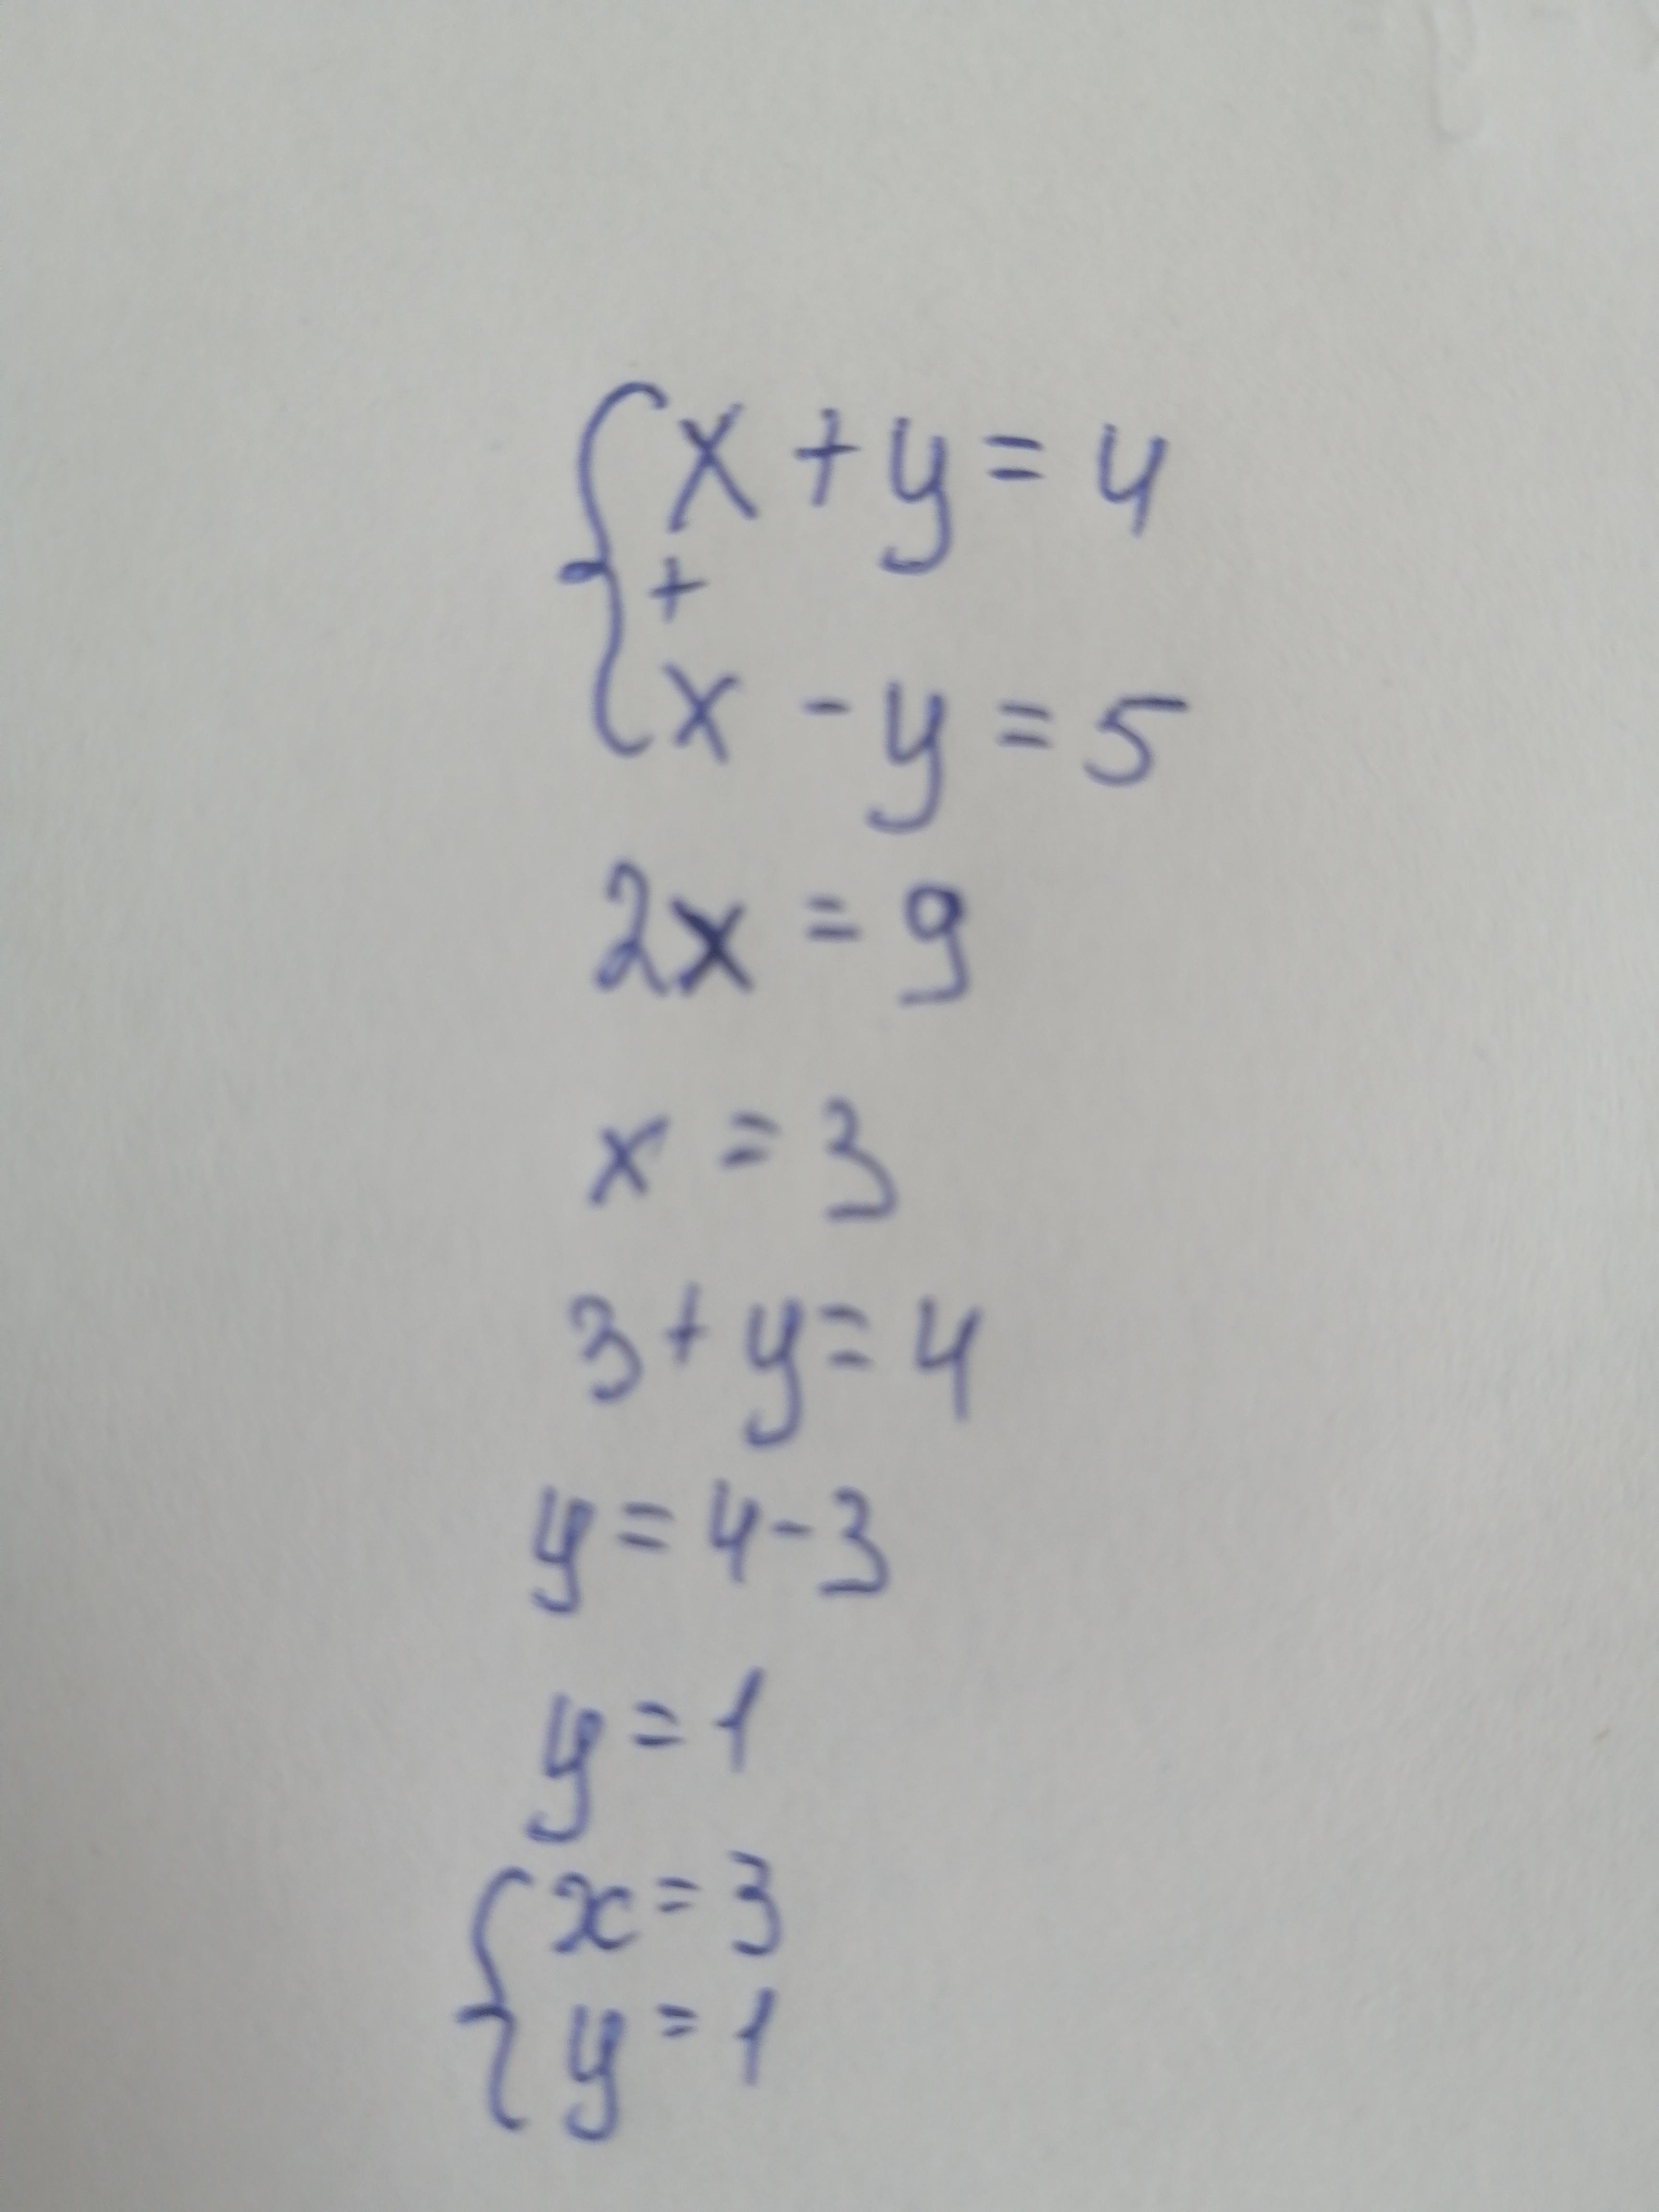 x + y = 4
+
x - y = 5
2x = 9
x = 3
3 + y = 4
y = 4 - 3
y = 1
x = 3
y = 1